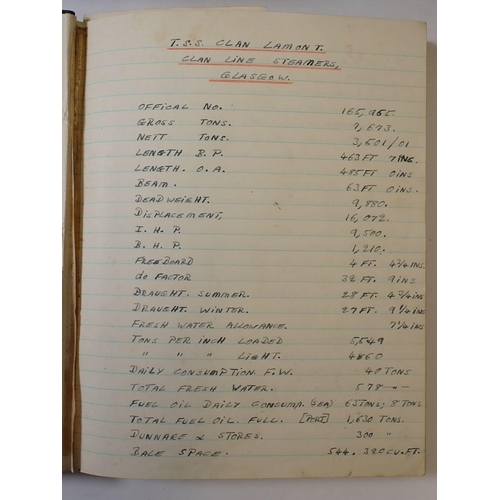 T.S.S. CLAN LAMONT.
CLAN LINE STEAMERS,
GLASGOW.
OFFICAL NO. 165,965.
GROSS TONS. 9,673.
NETT TONS. 3,601/01
LENGTH B.P. 463FT 7INS.
LENGTH. O.A. 485FT 0INS
BEAM. 63FT 0INS
DEADWEIGHT. 9,880.
DISPLACEMENT, 16,072.
I. H. P. 9,500.
B. H. P. 1,210.
FREEBOARD 4 FT. 4¾INS.
do FACTOR 32 FT. 9INS
DRAUGHT. SUMMER. 28 FT. 4¾INS
DRAUGHT. WINTER. 27 FT. 9¼INS
FRESH WATER ALLOWANCE. 7¼INS
TONS PER INCH LOADED 5,549
" " " LIGHT. 4860
DAILY CONSUMPTION F.W. 40 TONS
TOTAL FRESH WATER. 578 -"-
FUEL OIL DAILY CONSUMP. (SEA) 63TONS; 8 TONS
TOTAL FUEL OIL. FULL. [PORT] 1,630 TONS.
DUNNAGE & STORES. 300 "
BALE SPACE. 544. 320CU.FT.